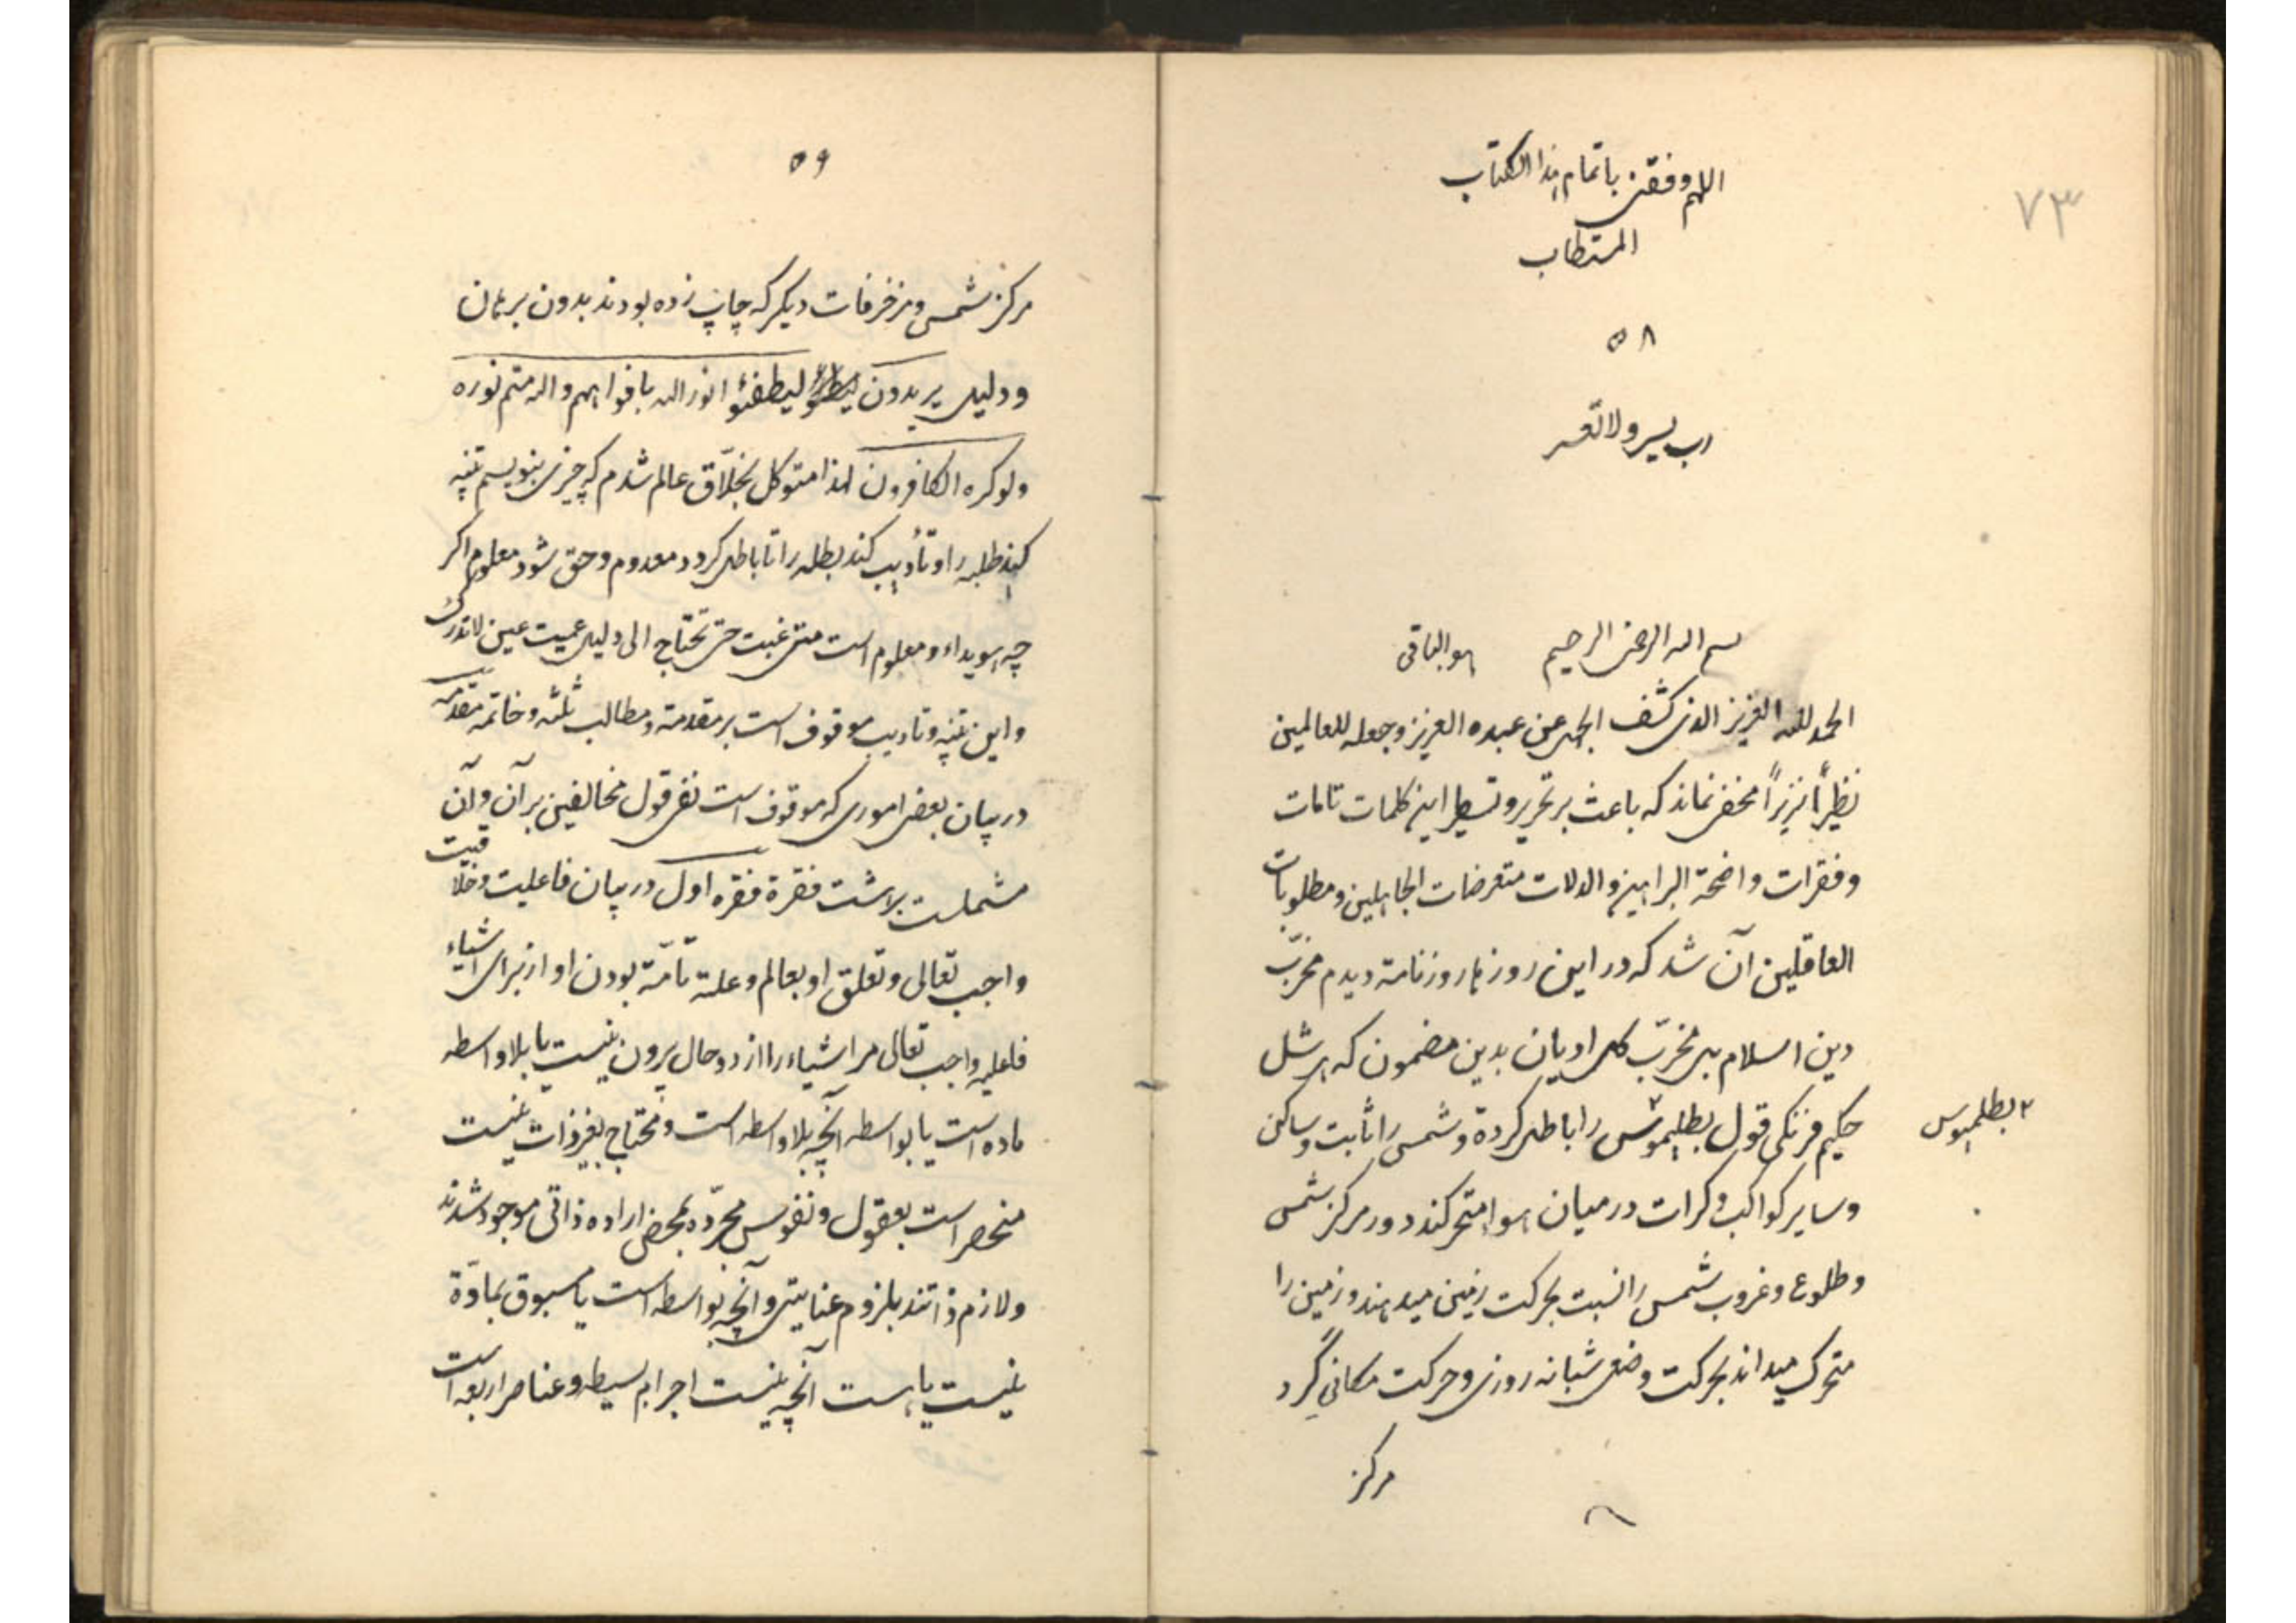 ۷۳
اللهم وفقنی باتمام هذا الکتاب
المستطاب
۵۸
رب یسر ولا تعسر
بسم الله الرحمن الرحیم هو الباقی
الحمد لله العزیز الذی کشف الجهل عن عبده العزیز وجعله للعالمین
نظیراً نزیراً مخفی نماند که باعث بر تحریر و تسطیر این کلمات تامات
و فقرات واضحة البراهین والدلات متعرضات الجاهلین و مطلوبات
العاقلین آن شد که در این روزها روزنامة دیدم مخرّب
دین اسلام بل مخرّب کل ادیان بدین مضمون که هرشل
حکیم فرنگی قول بطلیموس را باطل کردة و شمس را ثابت و ساکن
۲ بطلمیوس
و سایر کواکب و کرات در میان هوا متحرکند دور مرکز شمس
و طلوع و غروب شمس را نسبت بحرکت زمین میدهند و زمین را
متحرک میداند بحرکت وضعی شبانه روزی و حرکت مکانی گرد
مرکز
۵۹
مرکز شمس و مزخرفات دیکر که چاپ زده بودند بدون برهان
و دلیل یریدون لیطفئوا نور الله بافواههم والله متم نوره
ولو کره الکافرون لهذا متوکل بخلّاق عالم شدم که چیزی بنویسم تنبه
کند طلبه را و تأدیب کند بطله را تا باطل کردد معدوم و حق شود معلوم اکر
چه هویداء و معلوم است متی غبت حتی تحتاج الی دلیل عمیت عین لا تدرک
و این تنبه و تادیب موقوف است بر مقدمة و مطالب ثلثه و خاتمه مقدمه
در بیان بعض اموری که موقوف است نفی قول مخالفین بر آن و آن
مشملست بر هشت فقرة فقره اول در بیان فاعلیت و خلاقیت
واجب تعالی و تعلق او بعالم و علت تامّة بودن او از برای اشیاء
فاعلیه واجب تعالی مر اشیاء را از دو حال بیرون نیست یا بلا واسطه
ماده است یا بواسطه آنچه بلا واسطه است و محتاج بغیر ذات نیست
منحصر است بعقول و نفوس مجرّده بمحض اراده ذاتی موجود شدند
و لازم ذاتند بلزوم عنایتی و آنچه بواسطه است یا مسبوق بمادّة
نیست یا هست آنچه نیست اجرام بسیطه و عناصر اربعه است